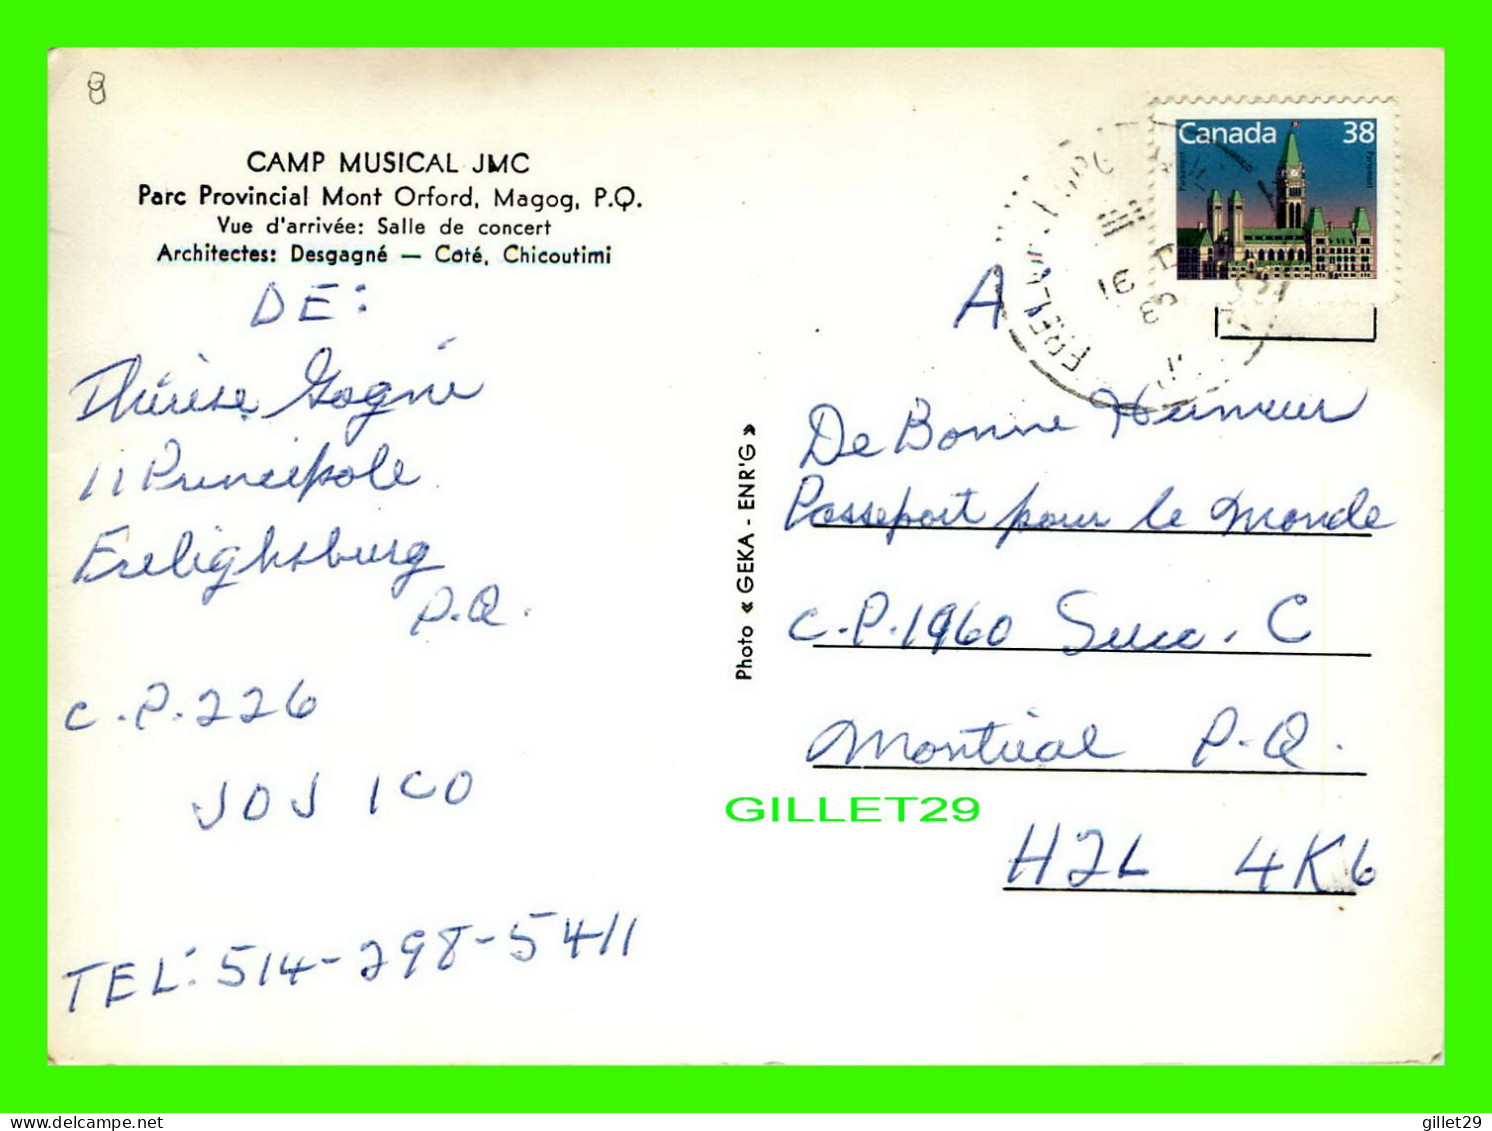 8
CAMP MUSICAL JMC
Parc Provincial Mont Orford, Magog, P.Q.
Vue d'arrivée: Salle de concert
Architectes: Desgagné — Coté, Chicoutimi
DE:
Thérèse Gagné
11 Principale
Frelighsburg
P.Q.
C.P. 226
J0J 1C0
TEL: 514-298-5411
Photo « GEKA - ENR'G »
Canada 38
A
De Bonne Humeur
Passeport pour le Monde
C.P. 1960 Succ. C
Montréal P.Q.
H2L 4K6
GILLET29
gillet29